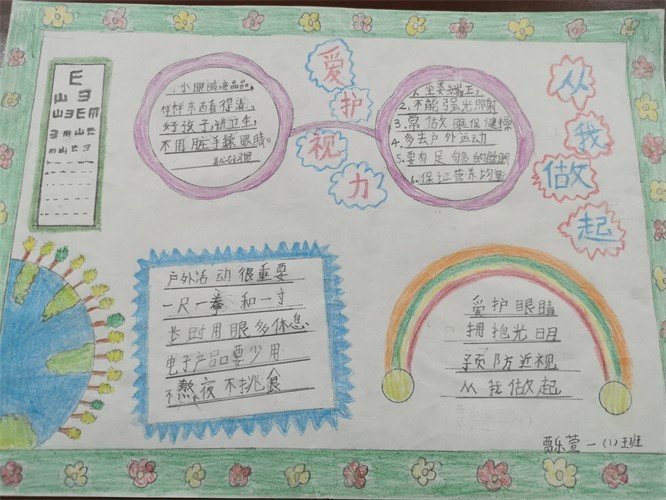 爱护视力
从我做起
E
山ヨ
山ヨE
小眼睛亮晶晶,
样样东西看得清,
好孩子,讲卫生,
不用脏手揉眼睛。
1.坐姿要端正,
2.不能强光照射
3.常做眼保健操
4.多去户外运动
5.要有足够的睡眠
6.保证营养均衡
户外活动很重要
一尺一拳和一寸
长时用眼多休息
电子产品要少用
不熬夜不挑食
爱护眼睛
拥抱光明
预防近视
从我做起
贾乐萱一(1)班